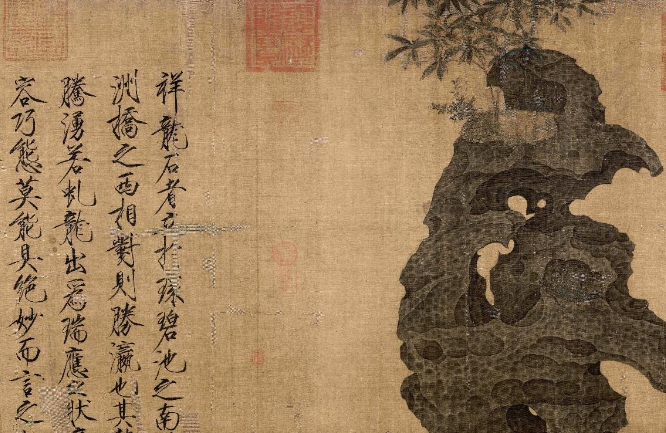 祥龍石者立於環碧池之南
洲橋之西相對則勝瀛也其
騰湧若虬龍出為瑞應之狀
容巧態莫能具絕妙而言之